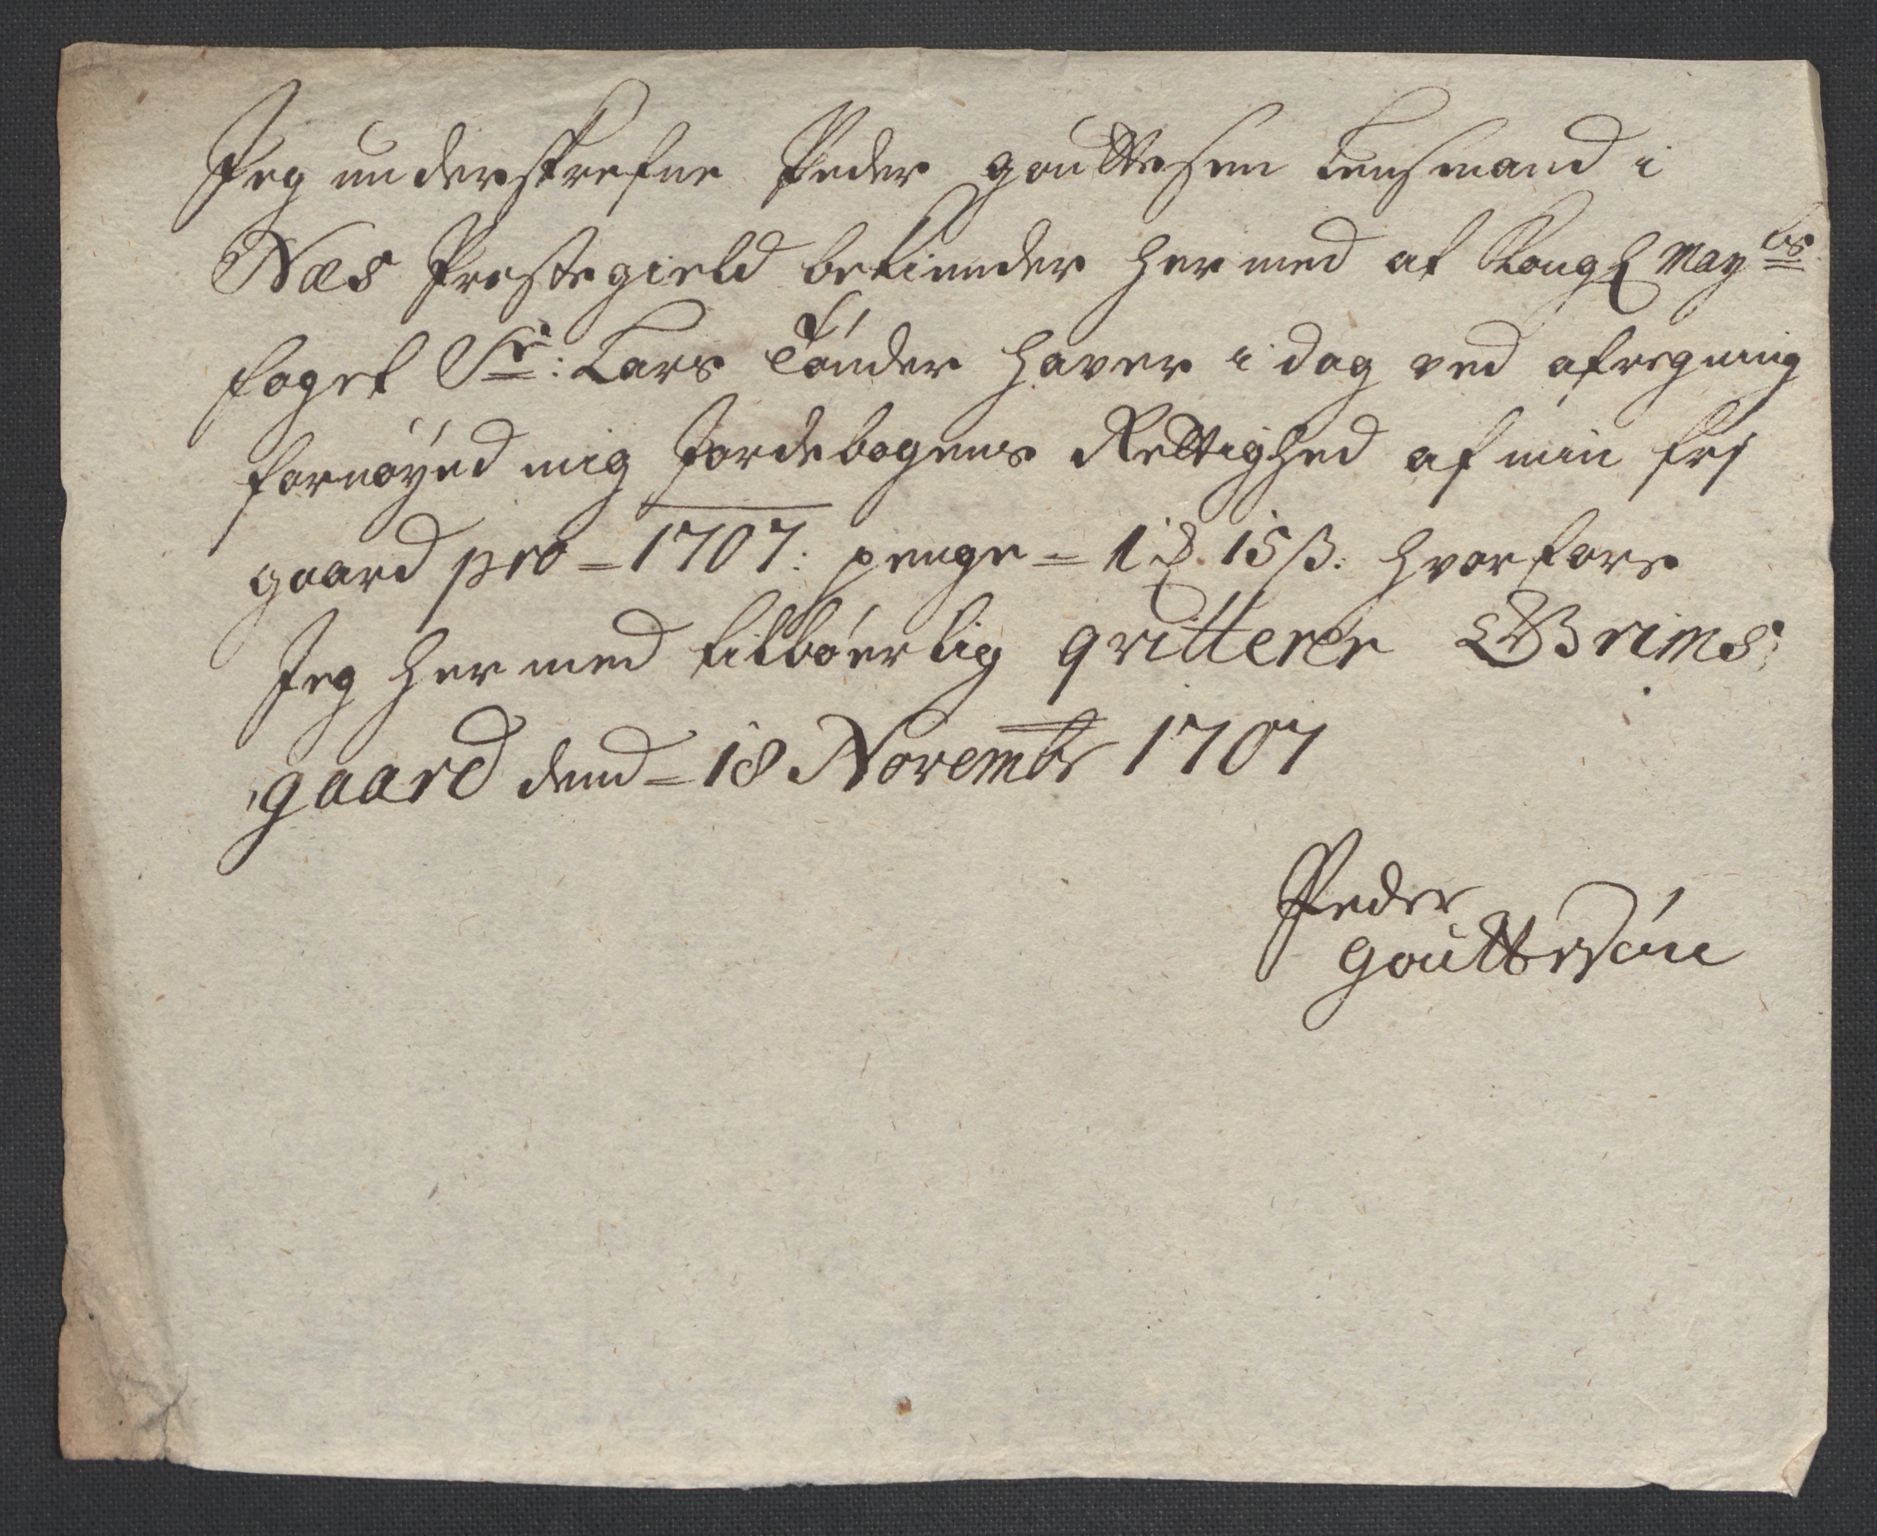 Jeg underskrefne Peder Gouttesen Lensmand i
Næs Prestegield bekiender hermed at Kongl May^ts
foget Sr: Lars Tønder haver i dag ved afregning
fornøyed mig Jordebogens Rettighed af min frj
gaard pro = 1707: penge = 1 rdr. 15 ß: hvorfore
Jeg hermed tilbørlig qvitterer Grims,
gaard dend = 18 Novembr 1707
Peder
Gouttesøn